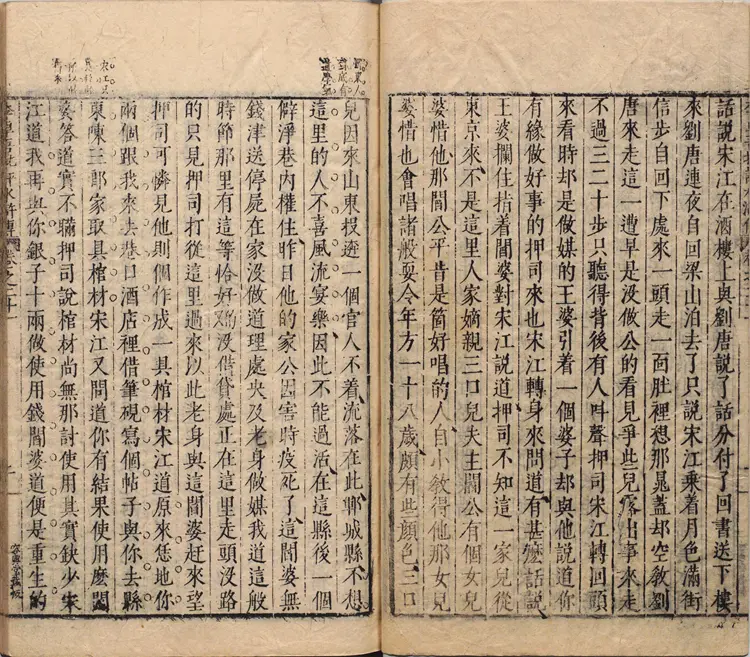 話說宋江在酒樓上與劉唐說了話分付了回書送下樓
來劉唐連夜自回梁山泊去了只說宋江乘着月色滿街
信步自回下處來一頭走一面肚裡想那晁蓋却空教劉
唐來走這一遭早是沒做公的看見爭些兒露出事來走
不過三二十步只聽得背後有人叫聲押司宋江轉回頭
來看時却是做媒的王婆引着一個婆子却與他說道你
有緣做好事的押司來也宋江轉身來問道有甚麼話說
王婆攔住指着閻婆對宋江說道押司不知這一家兒從
東京來不是這里人家嫡親三口兒夫主閻公有個女兒
婆惜他那閻公平昔是箇好唱的人自小教得他那女兒
婆惜也會唱諸般耍令年方一十八歲頗有些顏色三口
兒因來山東投逩一個官人不着流落在此鄆城縣不想
這里的人不喜風流宴樂因此不能過活在這縣後一個
僻淨巷內權住昨日他的家公因害時疫死了這閻婆無
錢津送停屍在家沒做道理處央及老身做媒我道這般
時節那里有這等恰好又沒借貸處正在這里走頭沒路
的只見押司打從這里過來以此老身與這閻婆赶來望
押司可憐見他則個作成一具棺材宋江道原來恁地你
兩個跟我來去巷口酒店裡借筆硯寫個帖子與你去縣
東陳三郎家取具棺材宋江又問道你有結果使用麼閻
婆答道實不瞞押司說棺材尚無那討使用其實缺少宋
江道我再與你銀子十兩做使用錢閻婆道便是重生的